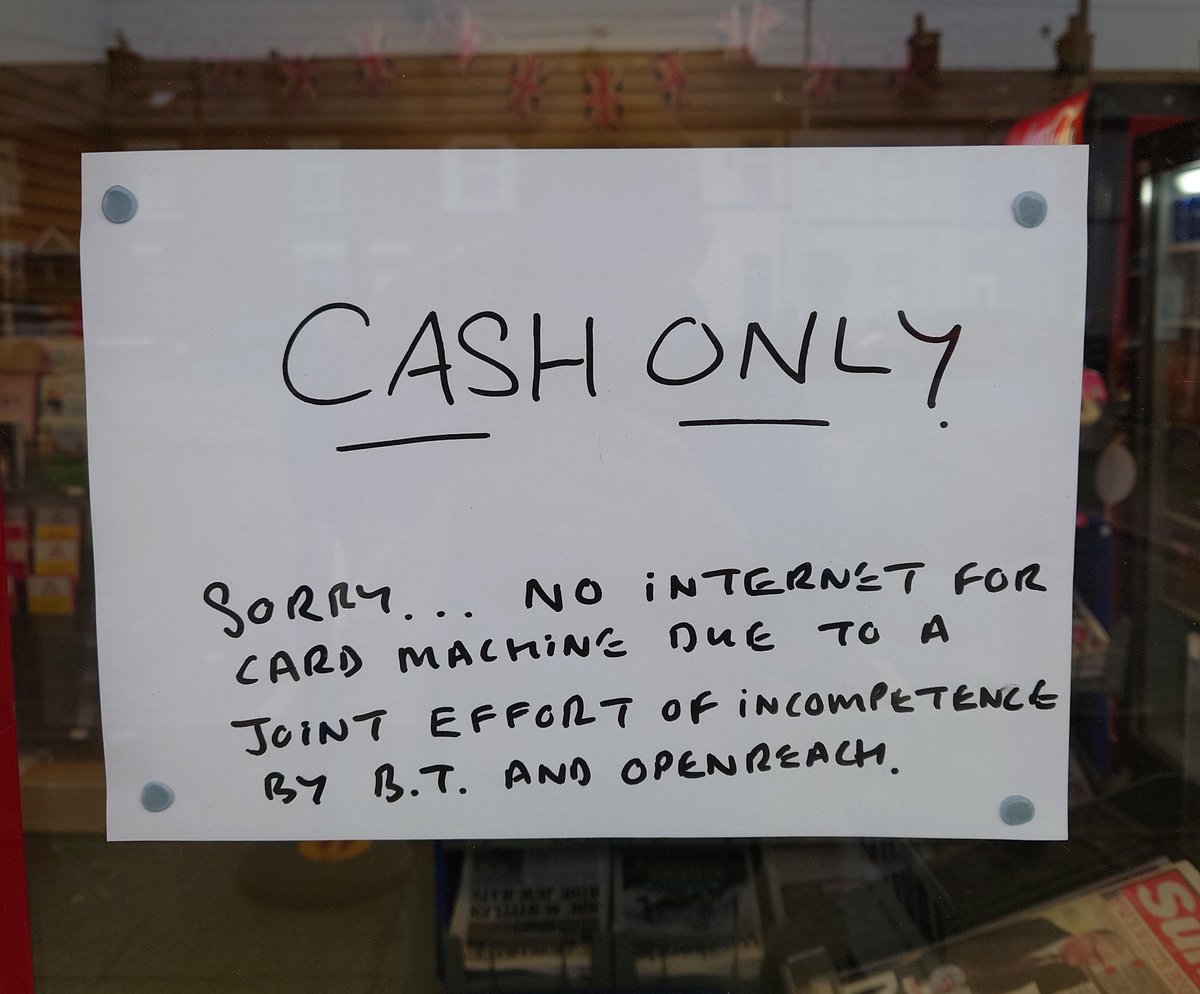 CASH ONLY.
SORRY... NO INTERNET FOR
CARD MACHINE DUE TO A
JOINT EFFORT OF INCOMPETENCE
BY B.T. AND OPENREACH.
Sun